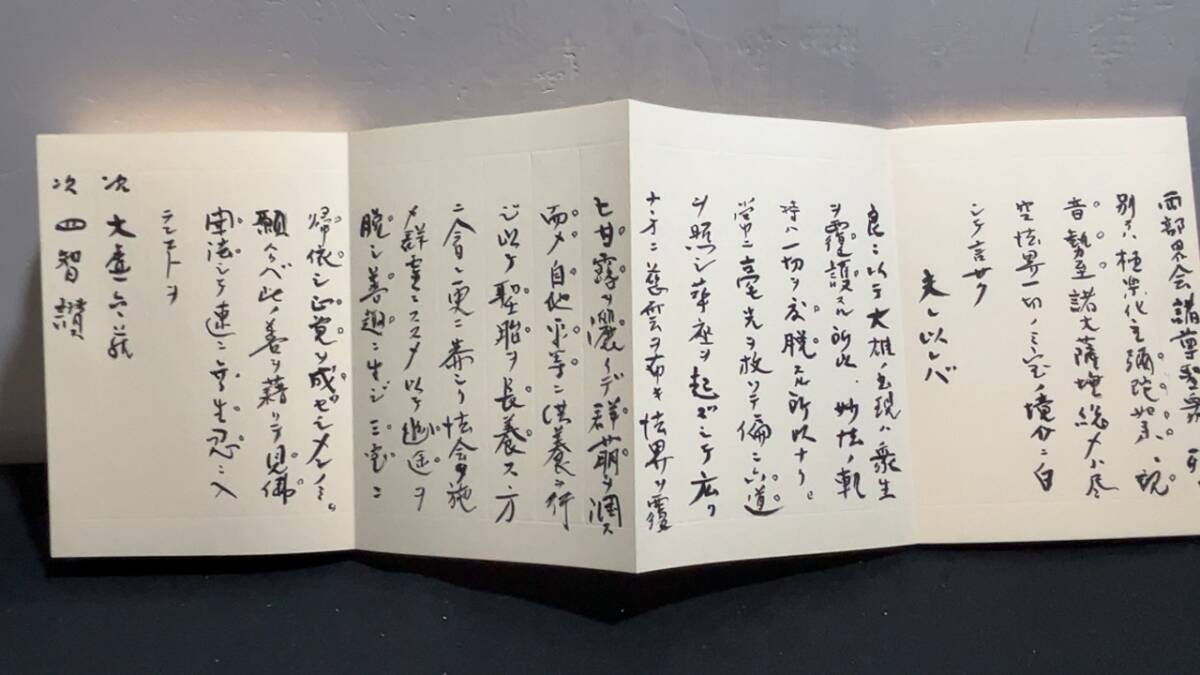 両部界会諸尊聖衆
別シテハ極楽化主彌陀如来、観
音勢至諸大薩埵総メハ尽
空法界一切ノ三宝ノ境界ニ白
シテ言サク
夫レ以レバ
良ニ以テ大雄ノ出現ハ衆生
ヲ覆護スル所此、妙法ノ軌
時ハ一切ヲ度脱スル所以ナリ。
常ニ毫光ヲ放ツテ偏ニ六道
ヲ照シ華座ヲ起ズシテ広ク
ナホニ慈雲ヲ布キ法界ヲ覆
ヒ甘露ヲ灑イデ群萠ヲ潤ス
而メ自他平等ニ供養ヲ行
ジ以テ聖胎ヲ長養ス、方
ニ今日更ニ恭シク法会ヲ施
メ群霊ニススメ以テ幽途ヲ
脱シ善趣ニ生ジ三宝ニ
帰依シ正覚ヲ成ゼシメンノミ。
願クハベ此ノ善ヲ藉リテ見佛
聞法シテ速ニ無生忍ニ入
ランコトヲ
次 大虚六六蔵
次 四智讃